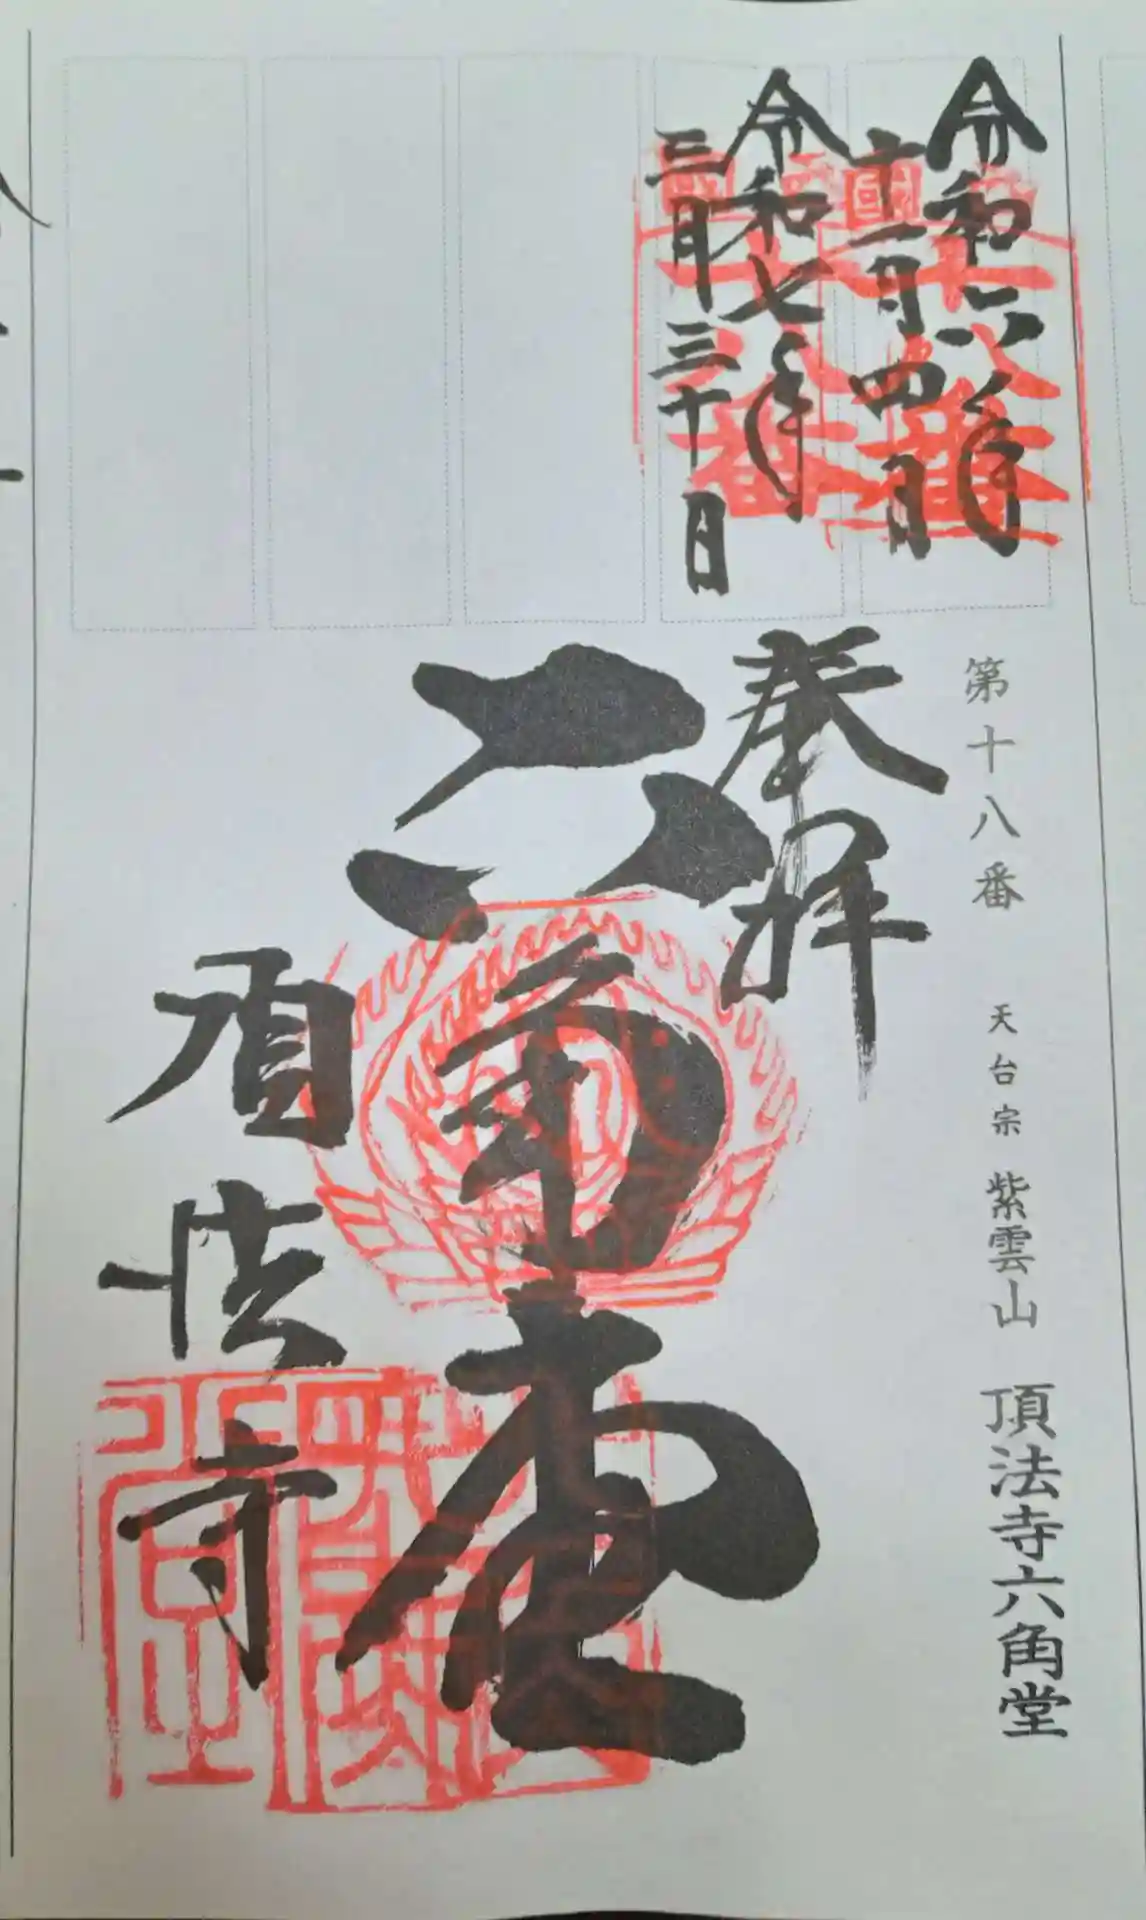 令和六年
十一月四日
令和七年
三月三十日
第十八番 天台宗 紫雲山 頂法寺六角堂
奉拝
六角堂
頂法寺